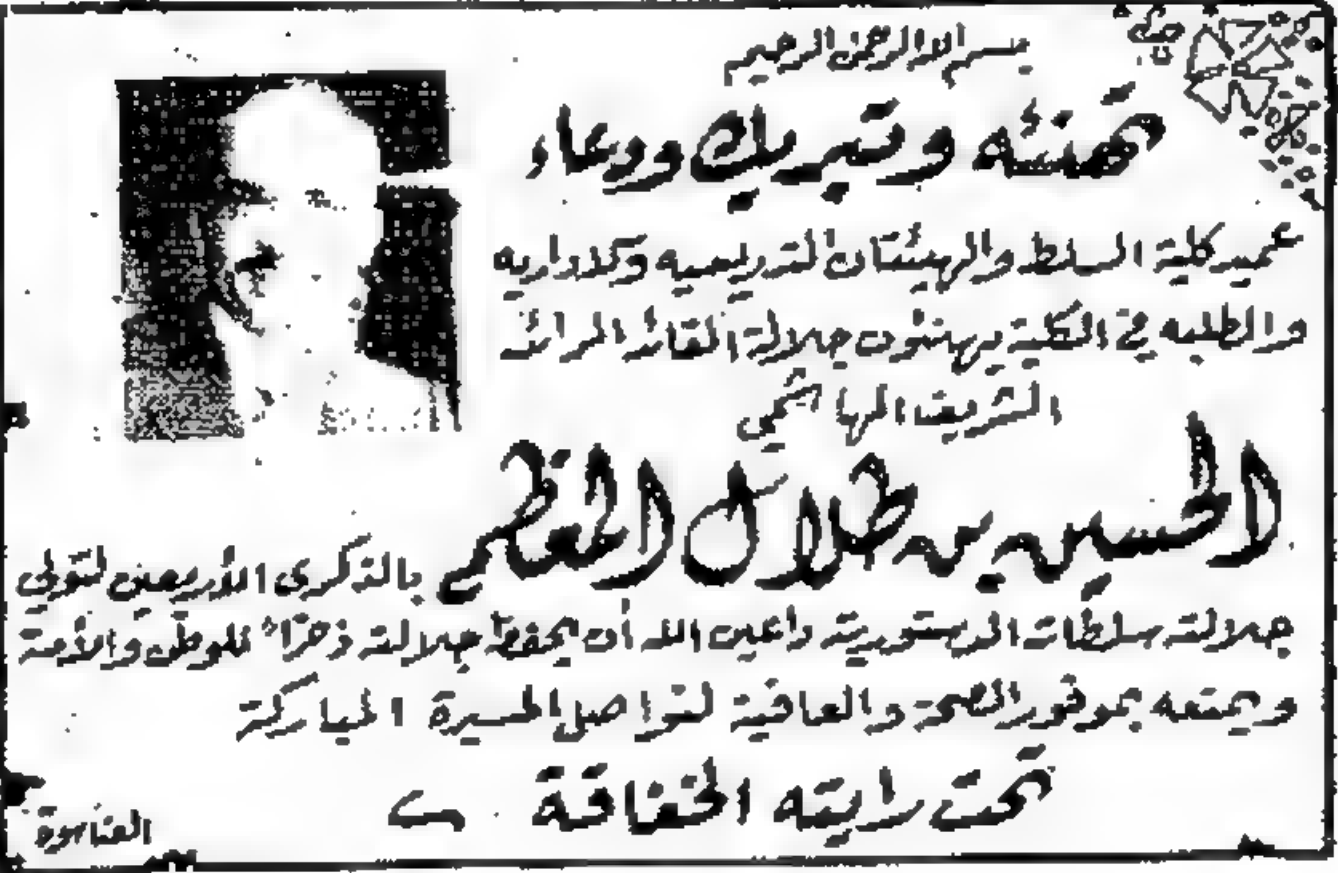 بسم الله الرحمن الرحيم
تهنئه وتبريك ودعاء
عميد كلية السلط والهيئتان التدريسيه والاداريه
والطلبه في الكلية يهنئون جلالة القائد الرائد
الشريف الهاشمي
الحسين بن طلال المعظم
بالذكرى الأربعين لتولي
جلالته سلطاته الدستورية داعين الله أن يحفظ جلالته ذخراً للوطن والأمة
ويمتعه بموفور الصحة والعافية لتواصل المسيرة المباركة
تحت رايته الخفاقة